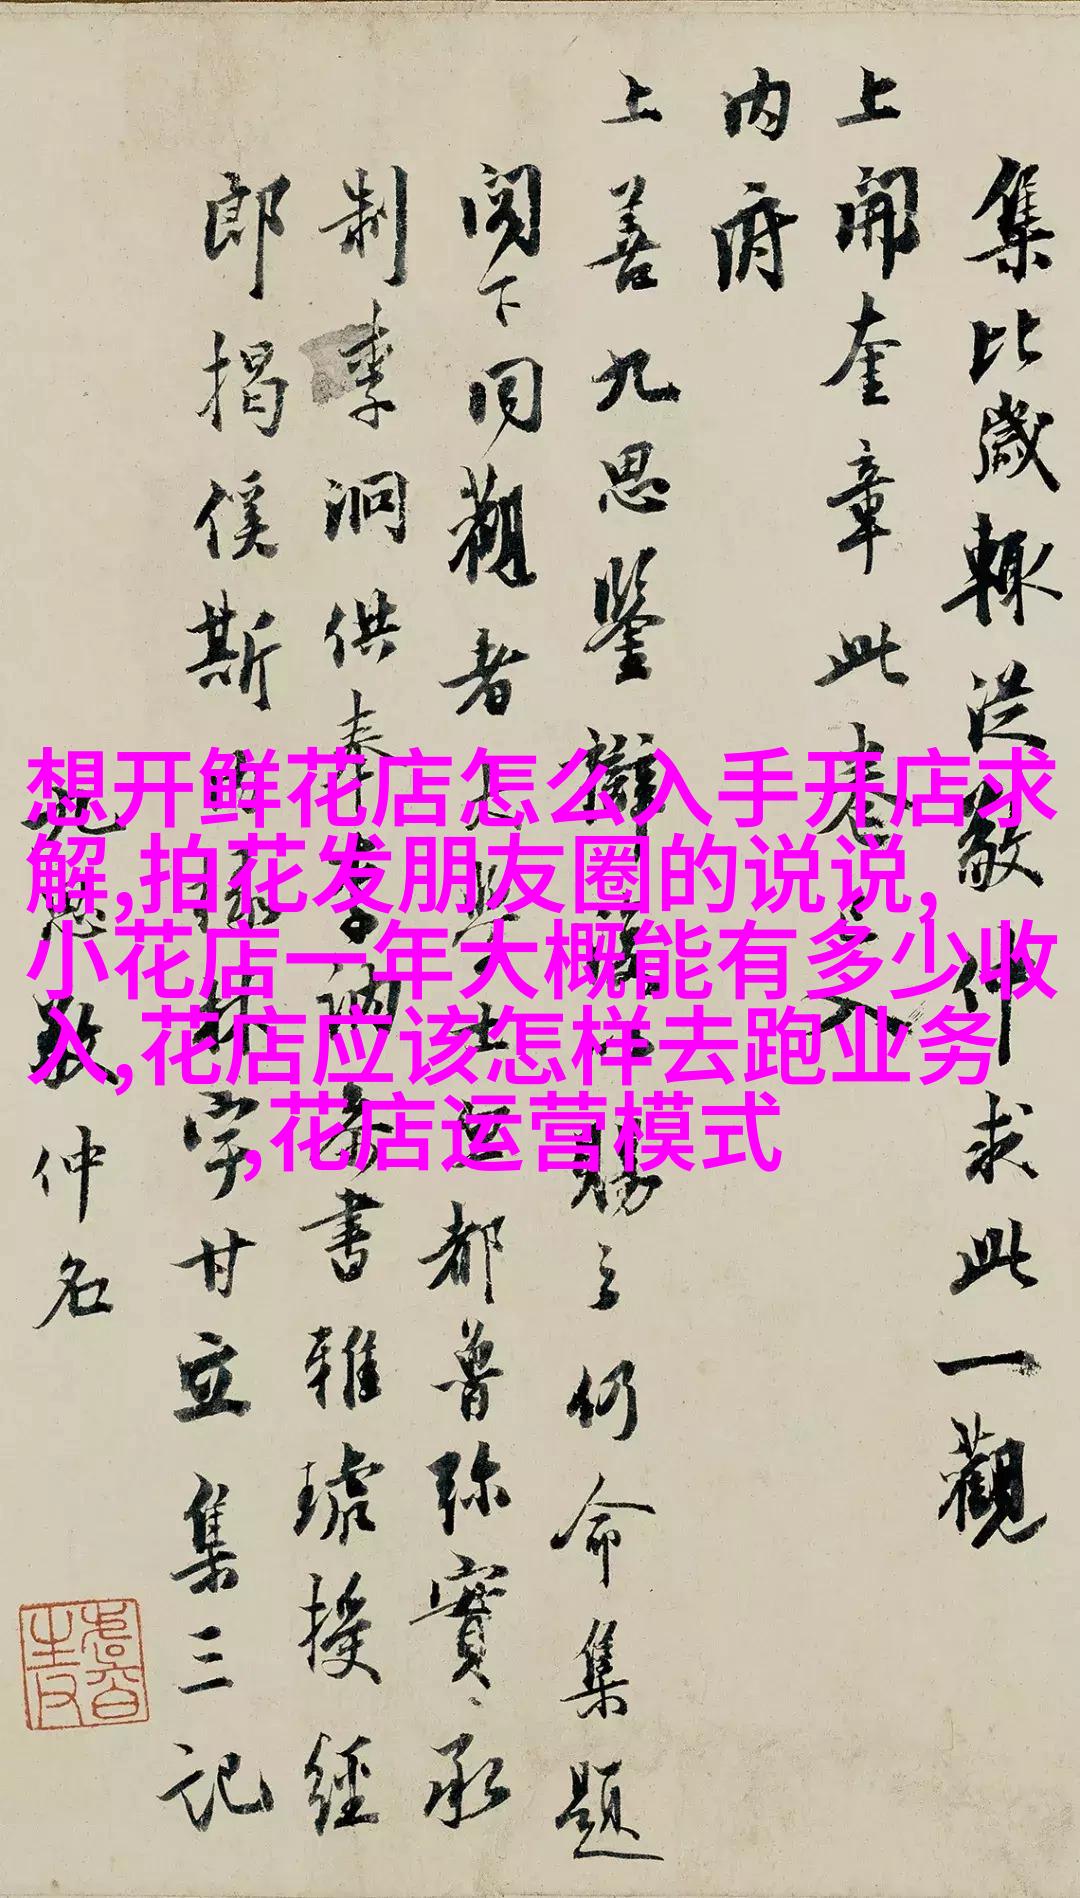 集比歲輒從敬仲求此一觀
上開奎章此卷入
内府
上善九思鑒辯
賜之仍命集題
閣下同觀者大學士
都魯弥實承
制李洞供奉李訥
書雅琥授經
郎揭傒斯
林宇甘立集三記
敬仲名
想开鲜花店怎么入手开店求
解,拍花发朋友圈的说说,
小花店一年大概能有多少收
入,花店应该怎样去跑业务
,花店运营模式